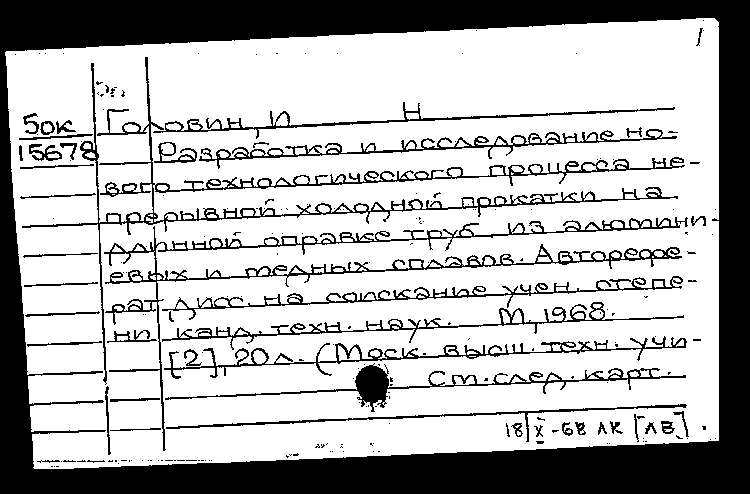 1
5ок Головин, И Н
15678 Разработка и исследование но-
вого технологического процесса не-
прерывной холодной прокатки на
длинной оправке труб из алюмини-
евых и медных сплавов. Авторефе-
рат дисс. на соискание учен. степе-
ни канд. техн. наук. М, 1968.
[2], 20 л. (Моск. высш. техн. учи-
См. след. карт.
18|X-68 ЛК [ЛВ].